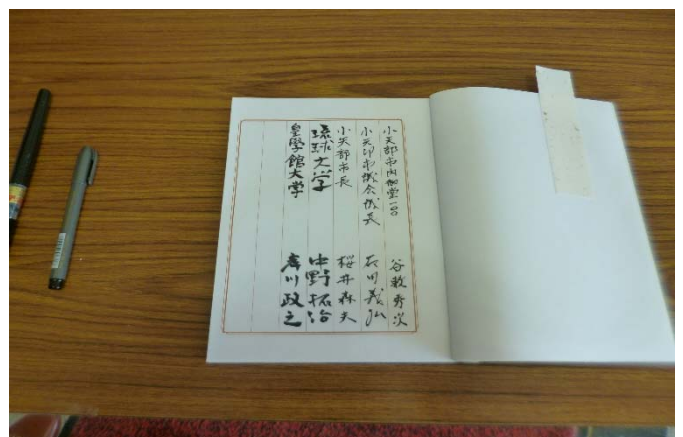 小矢部市内御堂一〇 谷敷秀次
小矢部市議会議長 石田義弘
小矢部市長 桜井森夫
琉球大学 中野拓治
皇學館大学 岸川政之